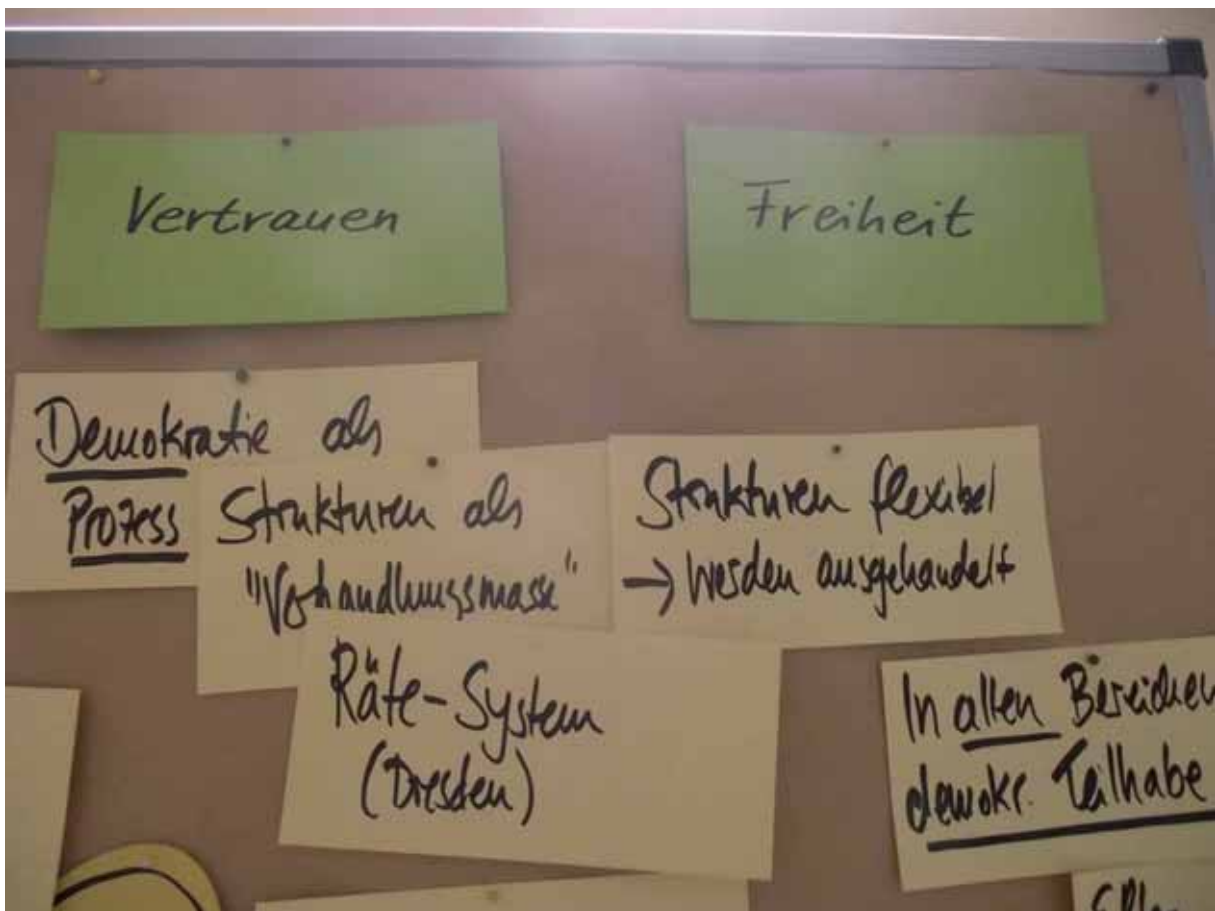 Vertrauen
Freiheit
Demokratie als
Prozess
Strukturen als
"Verhandlungsmasse"
Strukturen flexibel
→ werden ausgehandelt
Räte-System
(Dresden)
In allen Bereichen
demokr. Teilhabe